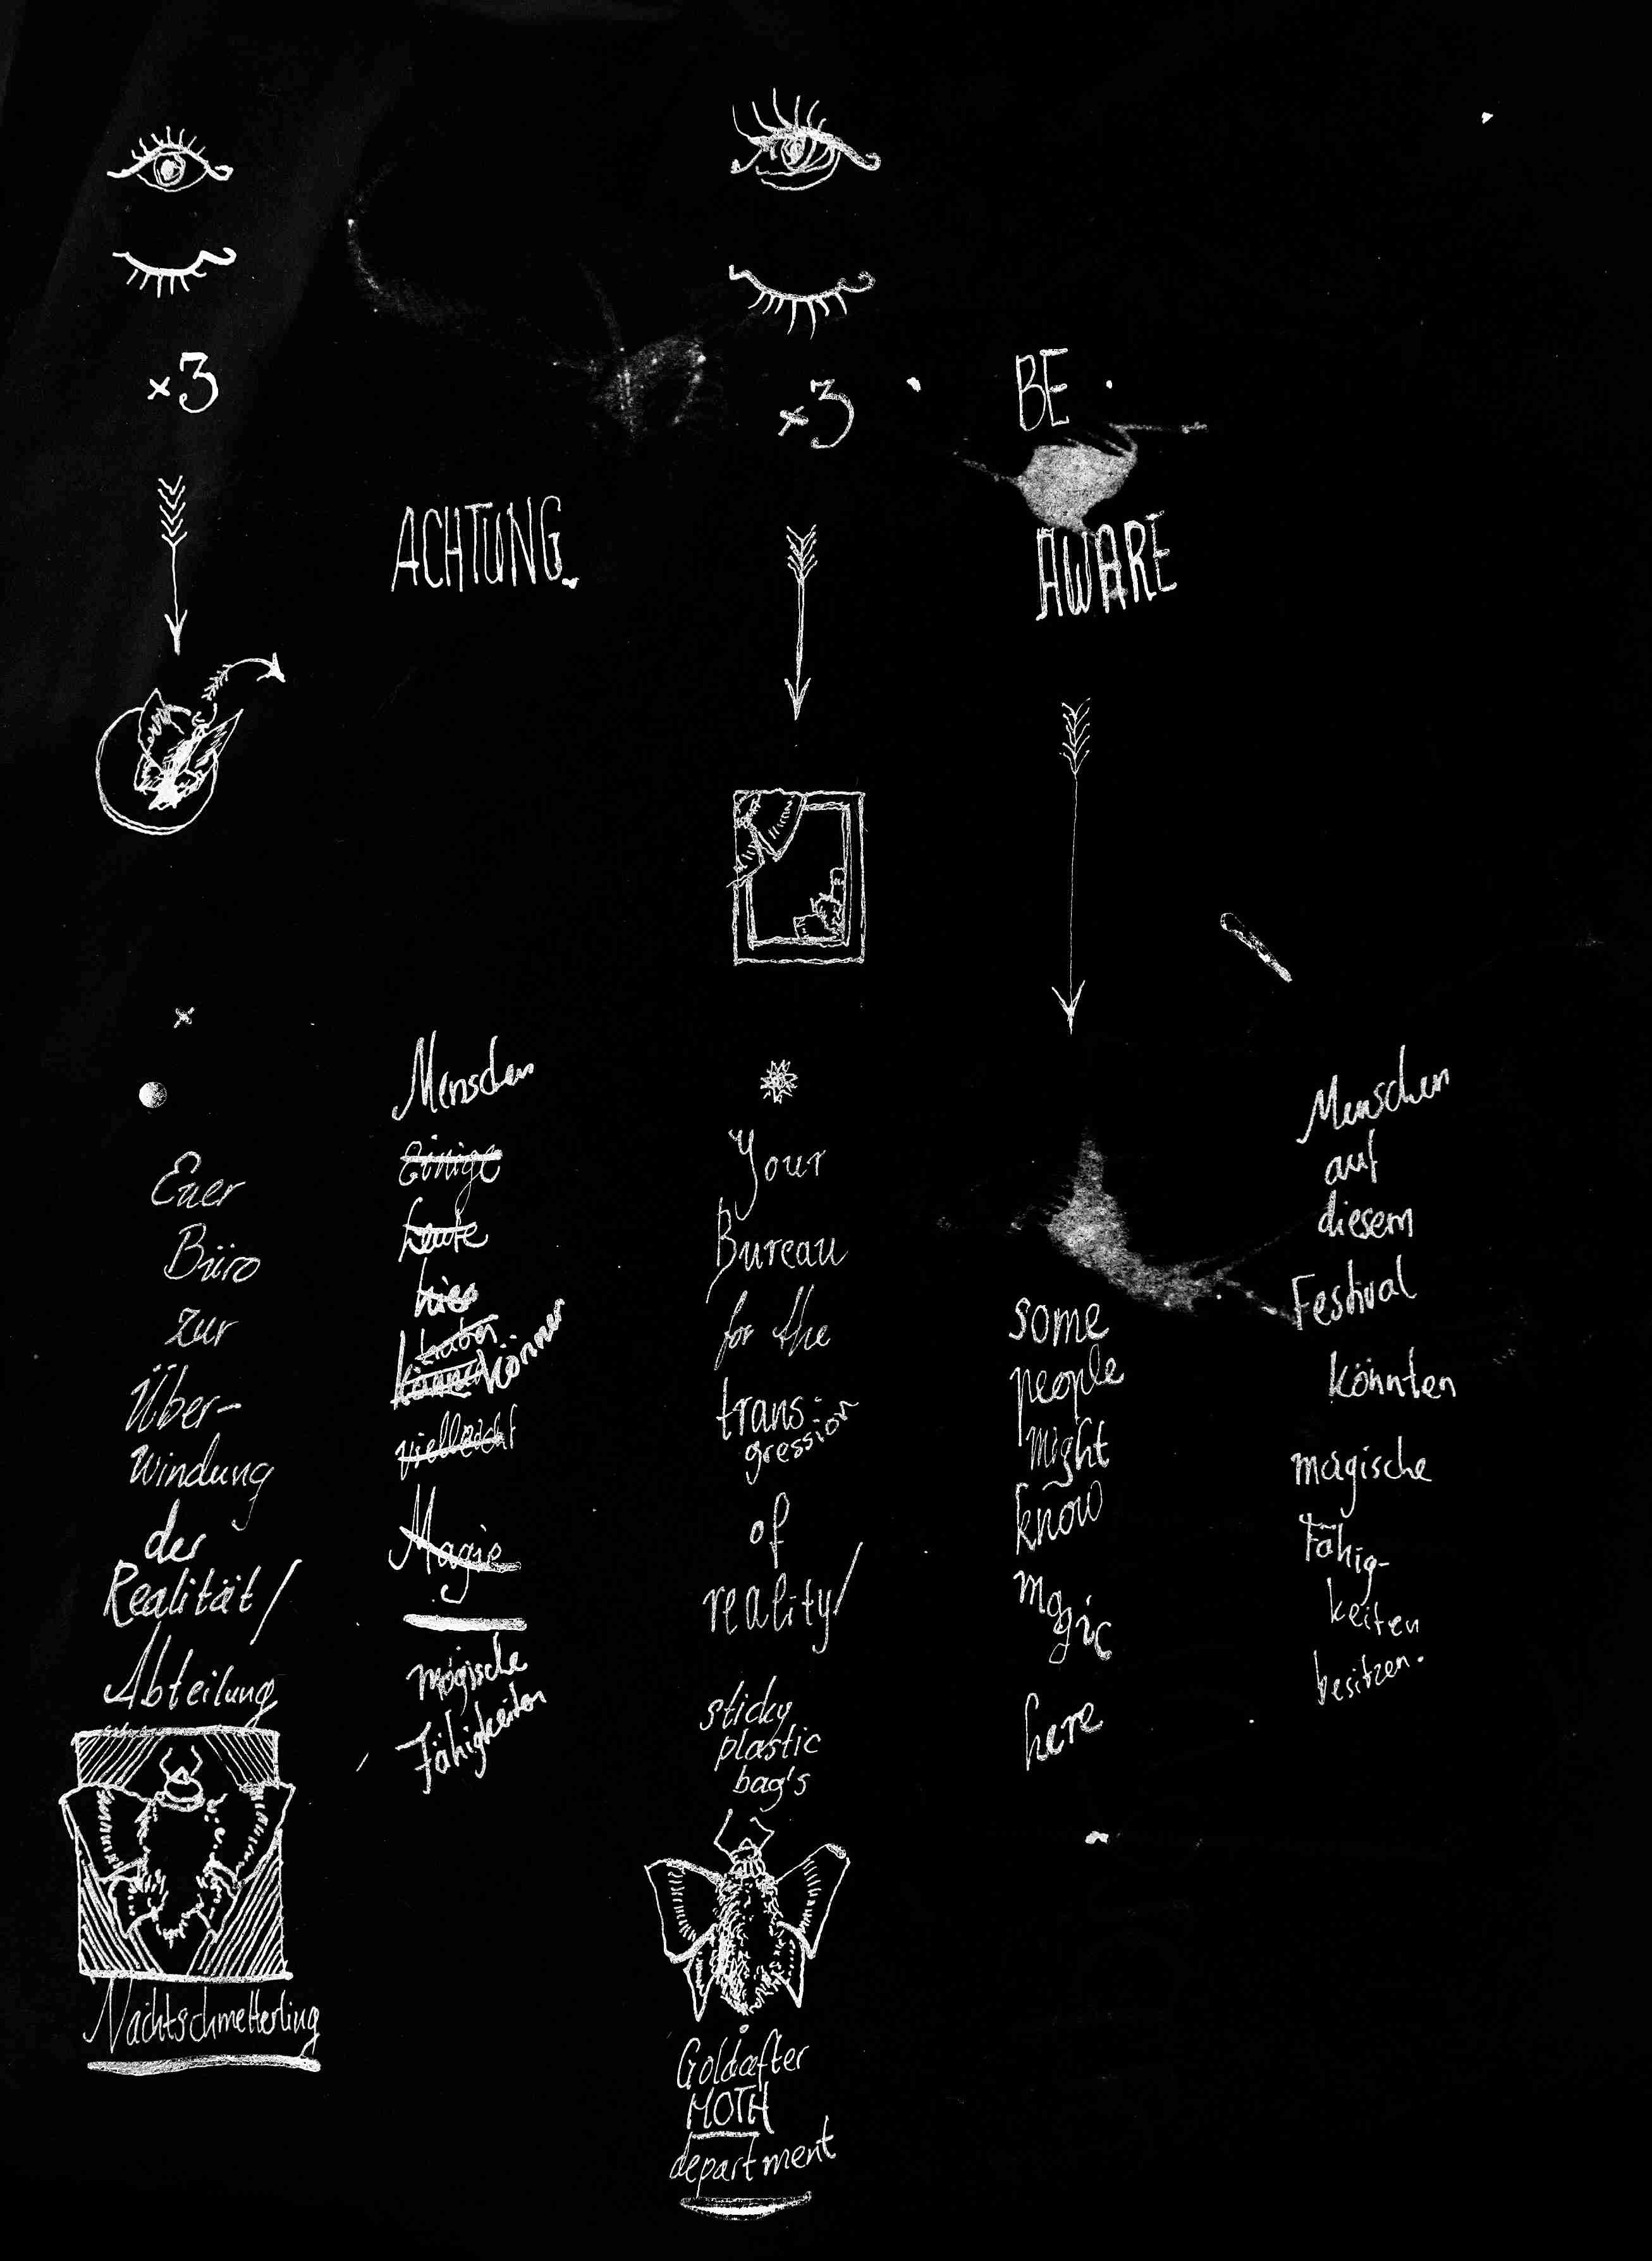 x3
Euer
Büro
zur
Über-
windung
der
Realität/
Abteilung
Nachtschmetterling
ACHTUNG.
Menschen
einige
heute
hier
haben
können
vielleicht
Magie
magische
Fähigkeiten
x3
Your
Bureau
for the
trans-
gression
of
reality/
sticky
plastic
bag's
Goldafter
MOTH
department
BE
AWARE
some
people
might
know
magic
here
Menschen
auf
diesem
Festival
könnten
magische
Fähig-
keiten
besitzen.